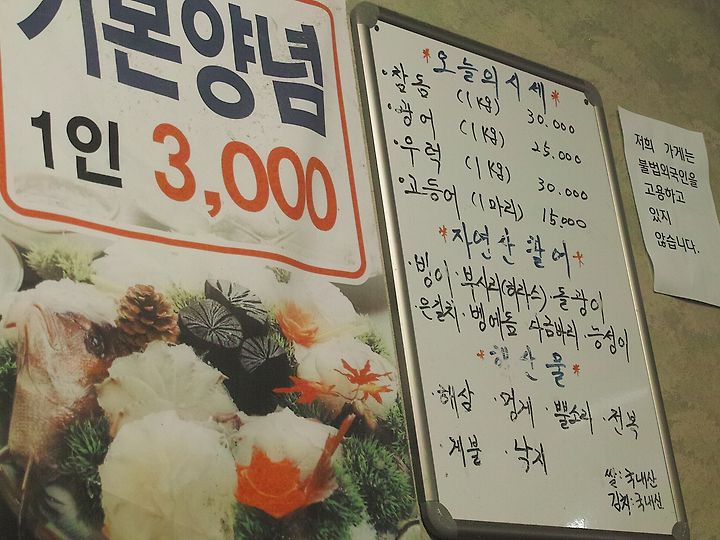 기본양념
1인 3,000
*오늘의 시세*
·참돔 (1kg) 30.000
·광어 (1kg) 25.000
·우럭 (1kg) 30.000
·고등어 (1마리) 15.000
*자연산 활어*
·빙이·부시리(히라스)·돌광이
·은갈치·병어돔·다금바리·능성이
*해산물*
·해삼 멍게·뿔소라·전복
·개불 낙지
쌀:국내산
김치:국내산
저희 가게는
불법외국인을
고용하고
있지
않습니다.